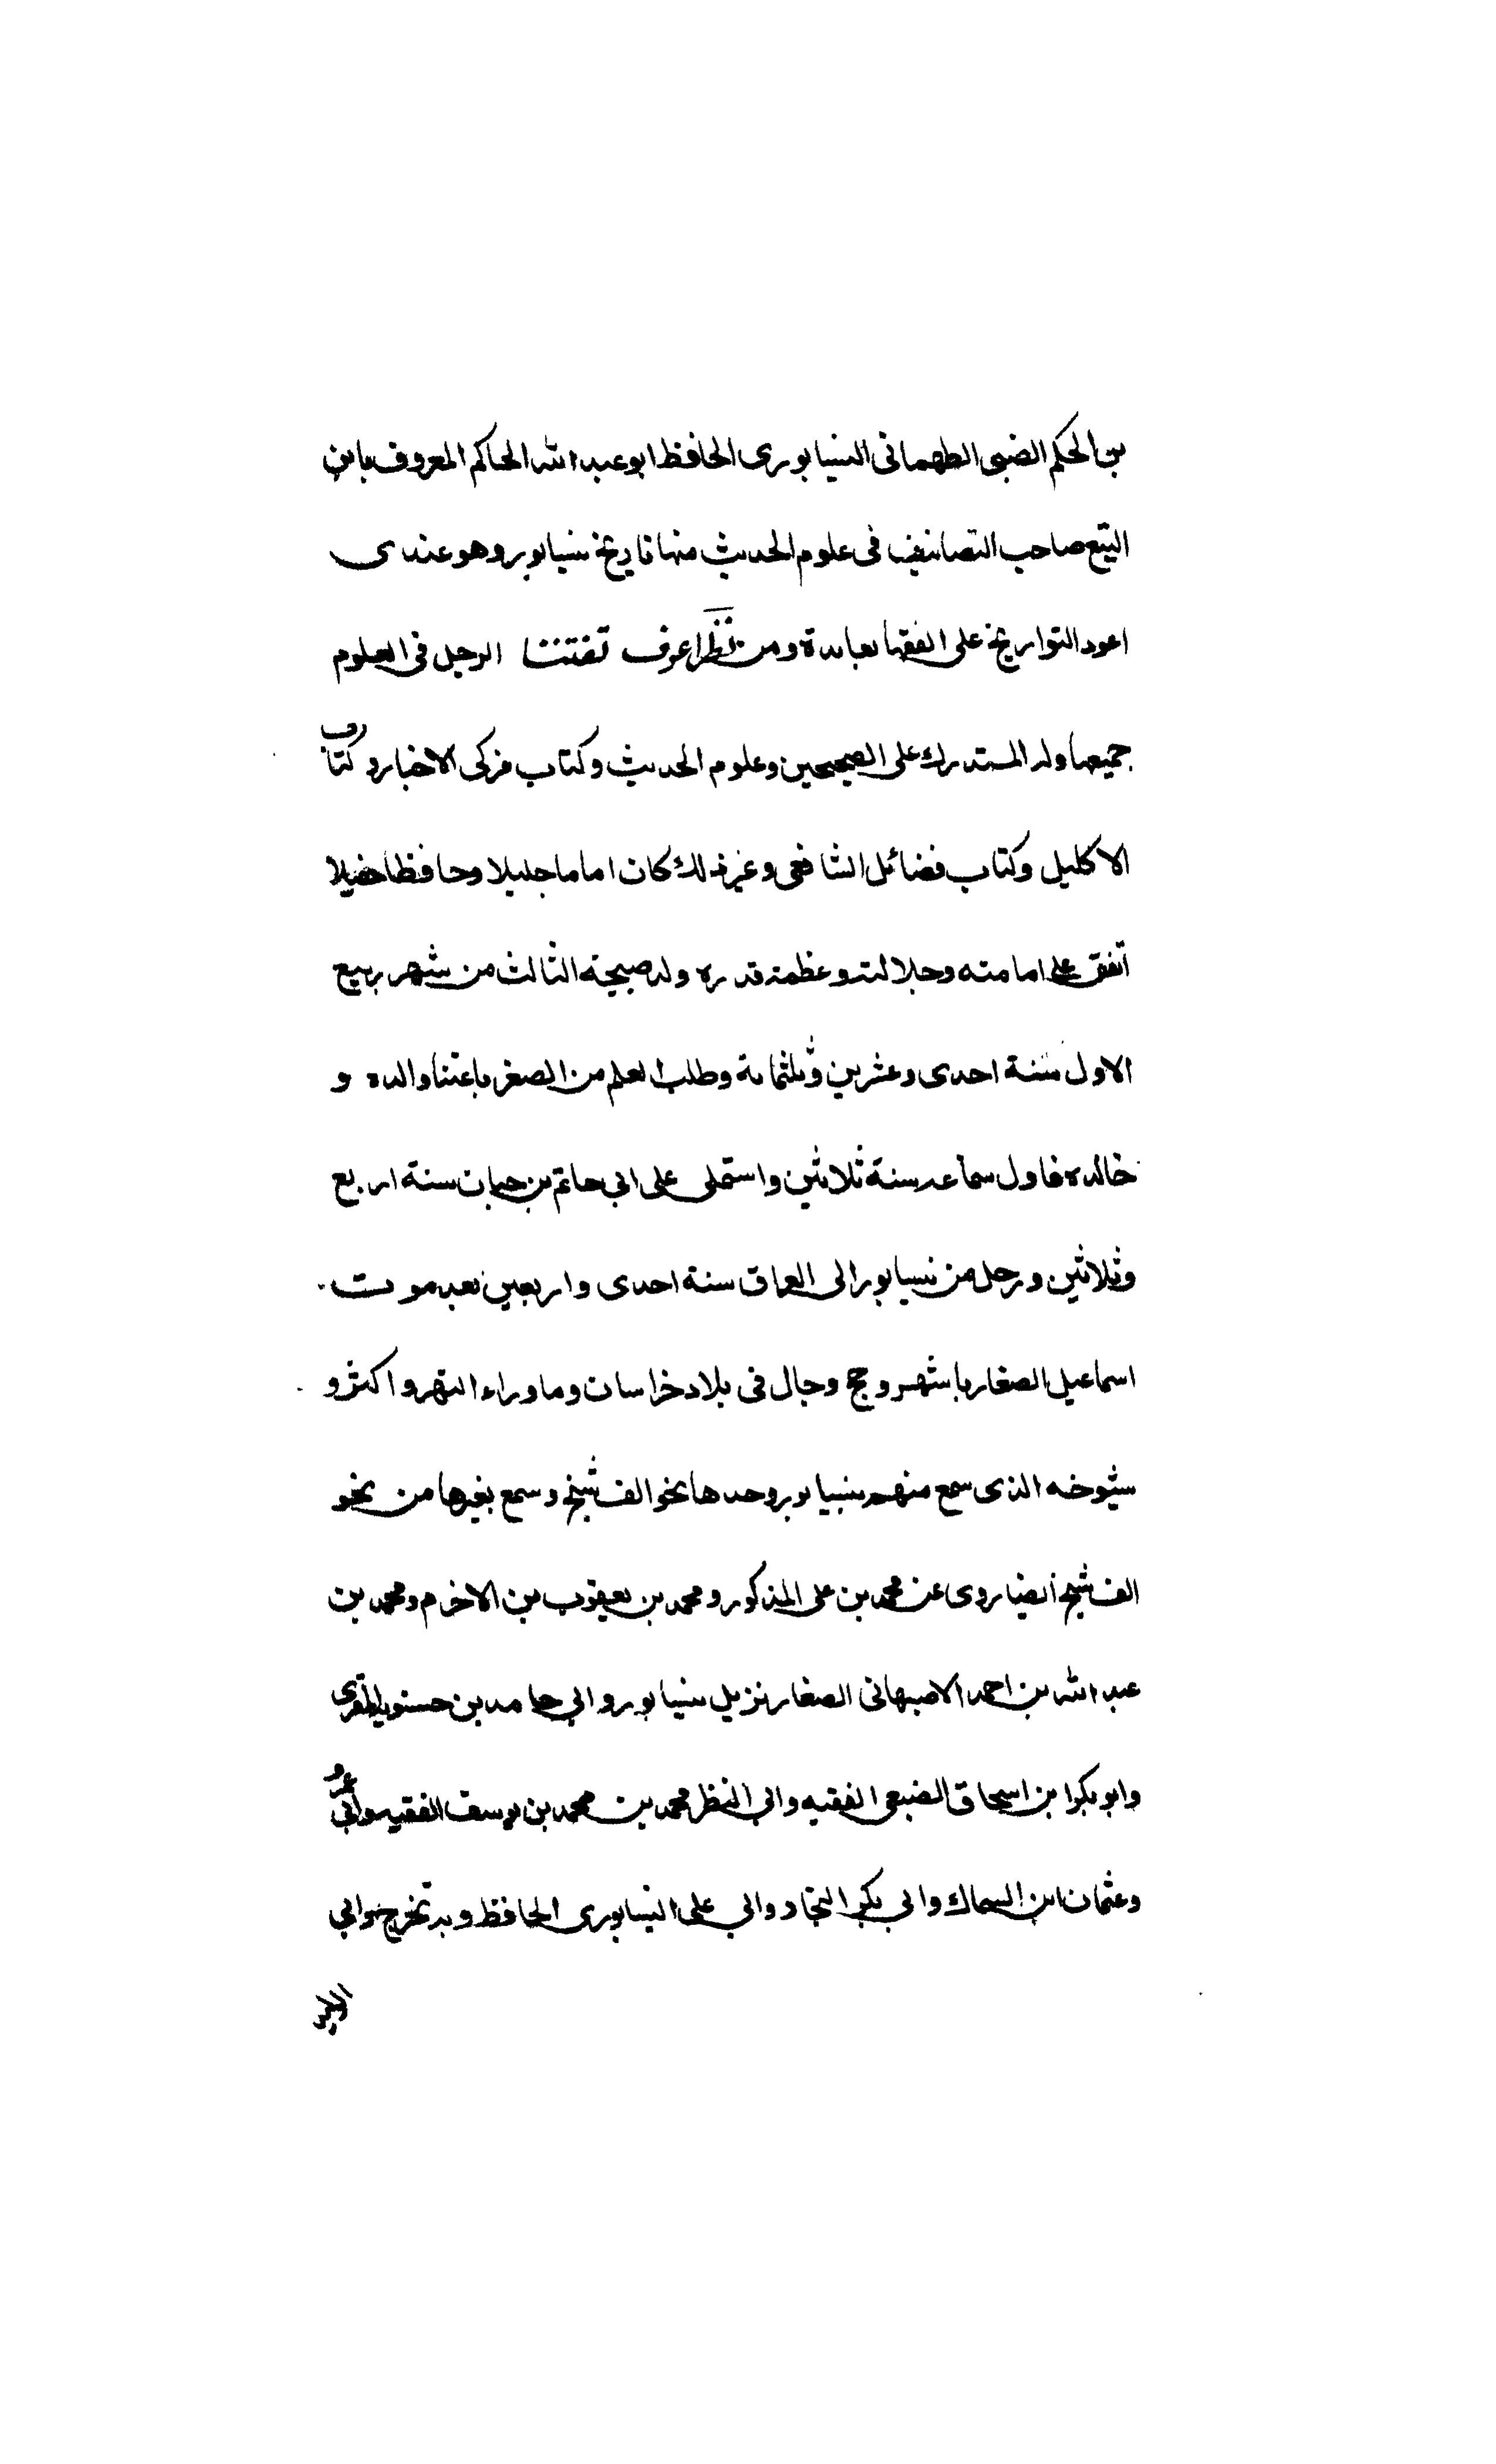 بن الحكم الضبى الطهمانى النيسابورى الحافظ ابو عبد الله الحاكم المعروف بابن
البيع صاحب التصانيف فى علوم الحديث منها تاريخ نيسابور وهو عندى
اعود التواريخ على الفقها بفايدة ومن نظر اعرف تفنن الرجل فى العلوم
جميعها وله المستدرك على الصحيحين وعلوم الحديث وكتاب مزكى الاخبار وكتاب
الاكليل وكتاب فضائل الشافعى وغير ذلك كان اماما جليلا وحافظا حفيلا
اتفق على امامته وجلالته وعظمة قدره ولد صبيحة الثالث من شهر ربيع
الاول سنة احدى وعشرين وثلثماية وطلب العلم من الصغر باعتنا والده و
خالده فاول سماعه سنة ثلاثين واستملى على ابي حاتم بن حبان سنة اربع
وثلاثين ورحل من نيسابور الى العراق سنة احدى واربعين بعد موت
اسماعيل الصفار باشهر وحج وجال فى بلاد خراسان وما وراء النهر واكثر و
شيوخه الذى سمع منهم بنيسابور وحدها نحو الف شيخ وسمع بغيرها من نحو
الف شيخ ايضا روى عن محمد بن على المذكور ومحمد بن يعقوب بن الاخرم ومحمد بن
عبد الله بن احمد الاصبهانى الصفار نزيل نيسابور وابي حامد بن حسنويه المقرى
وابو بكر ابن اسحاق الضبعى الفقيه وابي النظر محمد بن محمد بن يوسف الفقيه وابي عمرو
وعثمان ابن السماك وابي بكر النجاد وابي على النيسابورى الحافظ وبه تخرج وابي